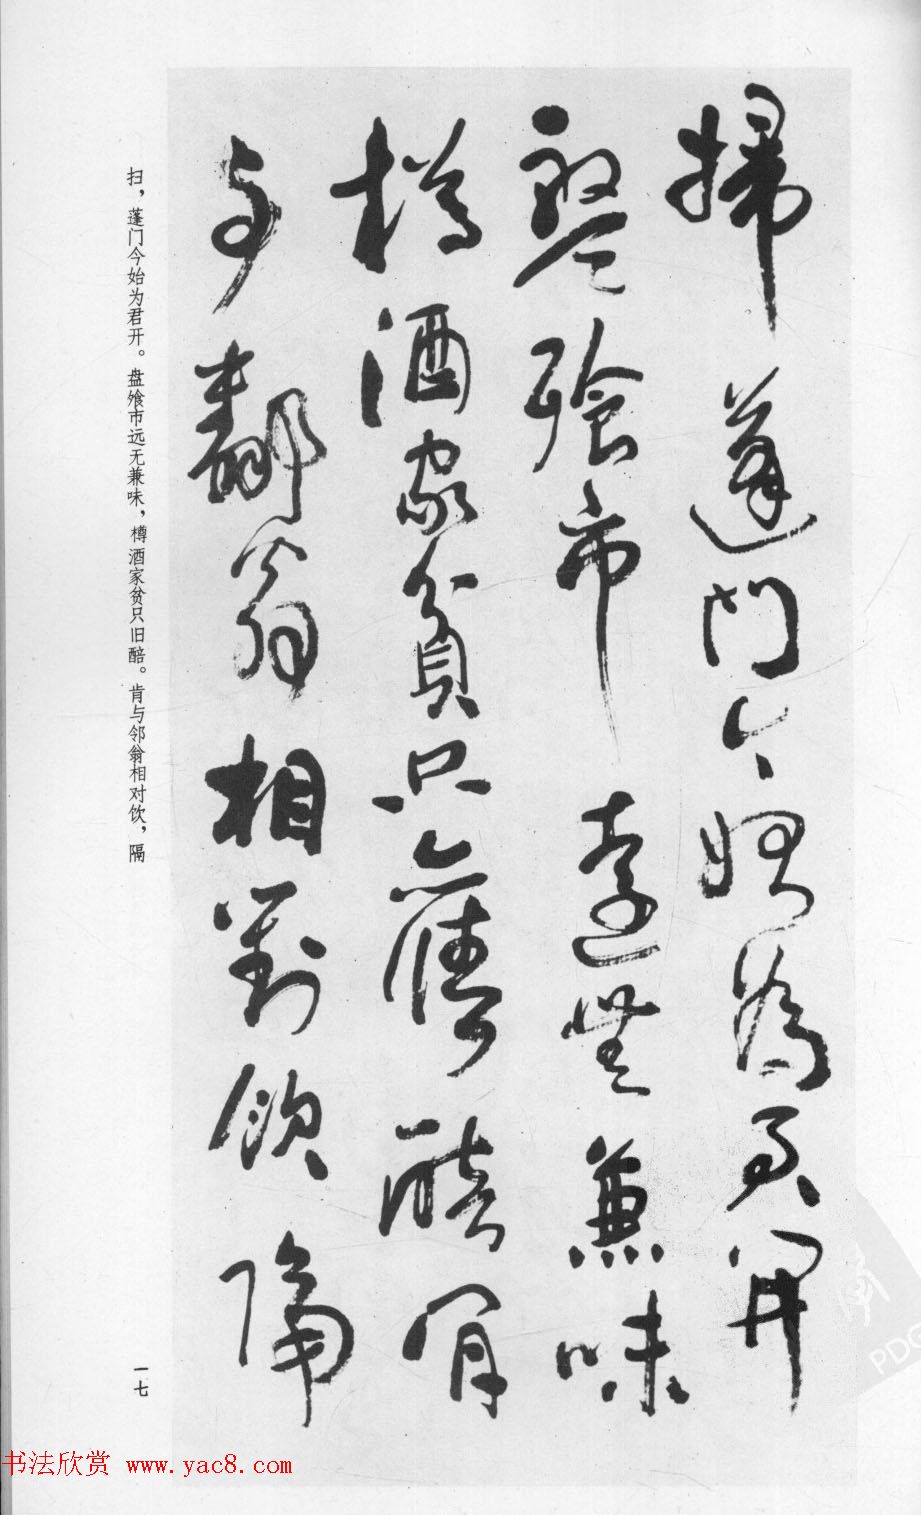 掃蓬門今始為君開
盤飱市遠無兼味
樽酒家貧只舊醅肯
与鄰翁相對飲隔
扫，蓬门今始为君开。盘飧市远无兼味，樽酒家贫只旧醅。肯与邻翁相对饮，隔
一七
书法欣赏 www.yac8.com